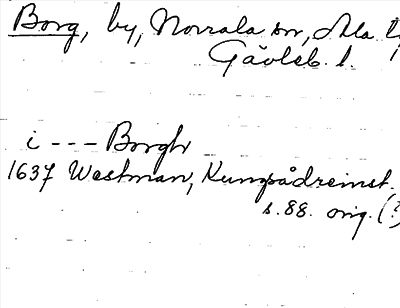 Borg, by, Norrala sn, Ala
Gävleb. l.
i --- Borgh
1637 Westman, Kungsådreinst.
s. 88. orig. (?)